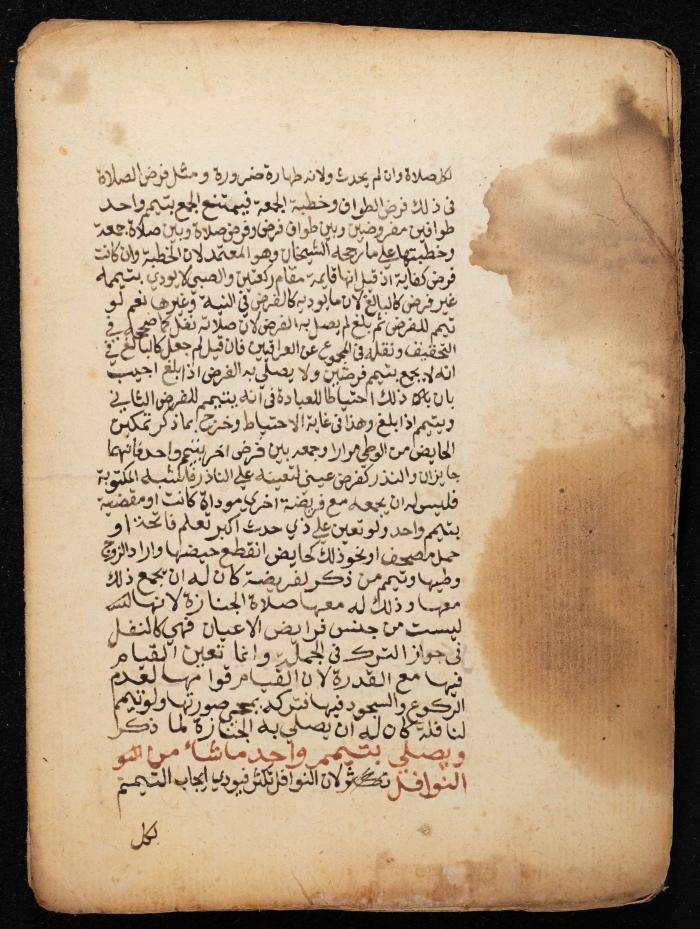 لكل صلاة وان لم يحدث ولانه طهارة ضرورة ومثل فرض الصلاة
فى ذلك فرض الطواف وخطبة الجمعة فيمتنع الجمع بتيمم واحد
طوافين مفروضين وبين طواف فرض وفرض صلاة وبين صلاة جمعة
وخطبتها على ما رجحه الشيخان وهو المعتمد لان الخطبة وان كانت
فرض كفاية اذ قيل انها قايمة مقام ركعتين والصبي لا يودي بتيممه
غير فرض كالبالغ لان ما يوديه كالفرض في النية وغيرها نعم لو
تيمم للفرض ثم بلغ لم يصل به الفرض لان صلاته نفل كما صححه في
التحقيق ونقله فى المجموع عن العراقيين فان قيل لم جعل كالبالغ في
انه لا يجمع بتيمم فرضين ولا يصلي به الفرض اذا بلغ اجيب
بان ذلك احتياطا للعبادة في انه يتيمم للفرض الثاني
ويتيمم اذا بلغ وهذا فى غاية الاحتياط وخرج بما ذكر تمكين
الحايض من الوطي مرارا وجمعه بين فرض اخر بتيمم واحد فانهما
جايزان والنذر كفرض عيني لتعينه على الناذر فاشبه المكتوبة
فليس له ان يجمعه مع فريضة اخرى موداة كانت او مقضية
بتيمم واحد ولو تعين على ذي حدث اكبر تعلم فاتحة او
حمل مصحف او نحو ذلك كحايض انقطع حيضها واراد الزوج
وطيها وتيمم من ذكر لفريضة كان له ان يجمع ذلك
معها وذلك له معها صلاة الجنازة لانها
ليست من جنس فرايض الاعيان فهي كالنفل
فى جواز الترك فى الجملة وانما تعين القيام
فيها مع القدرة لان القيام قوامها لعدم
الركوع والسجود فيها فتركه يمحي صورتها ولو تيمم
لنافلة كان له ان يصلي به الجنازة لما ذكر
ويصلي بتيمم واحد ماشاء من
النوافل لان النوافل تكثر فيودي ايجاب التيمم
لكل